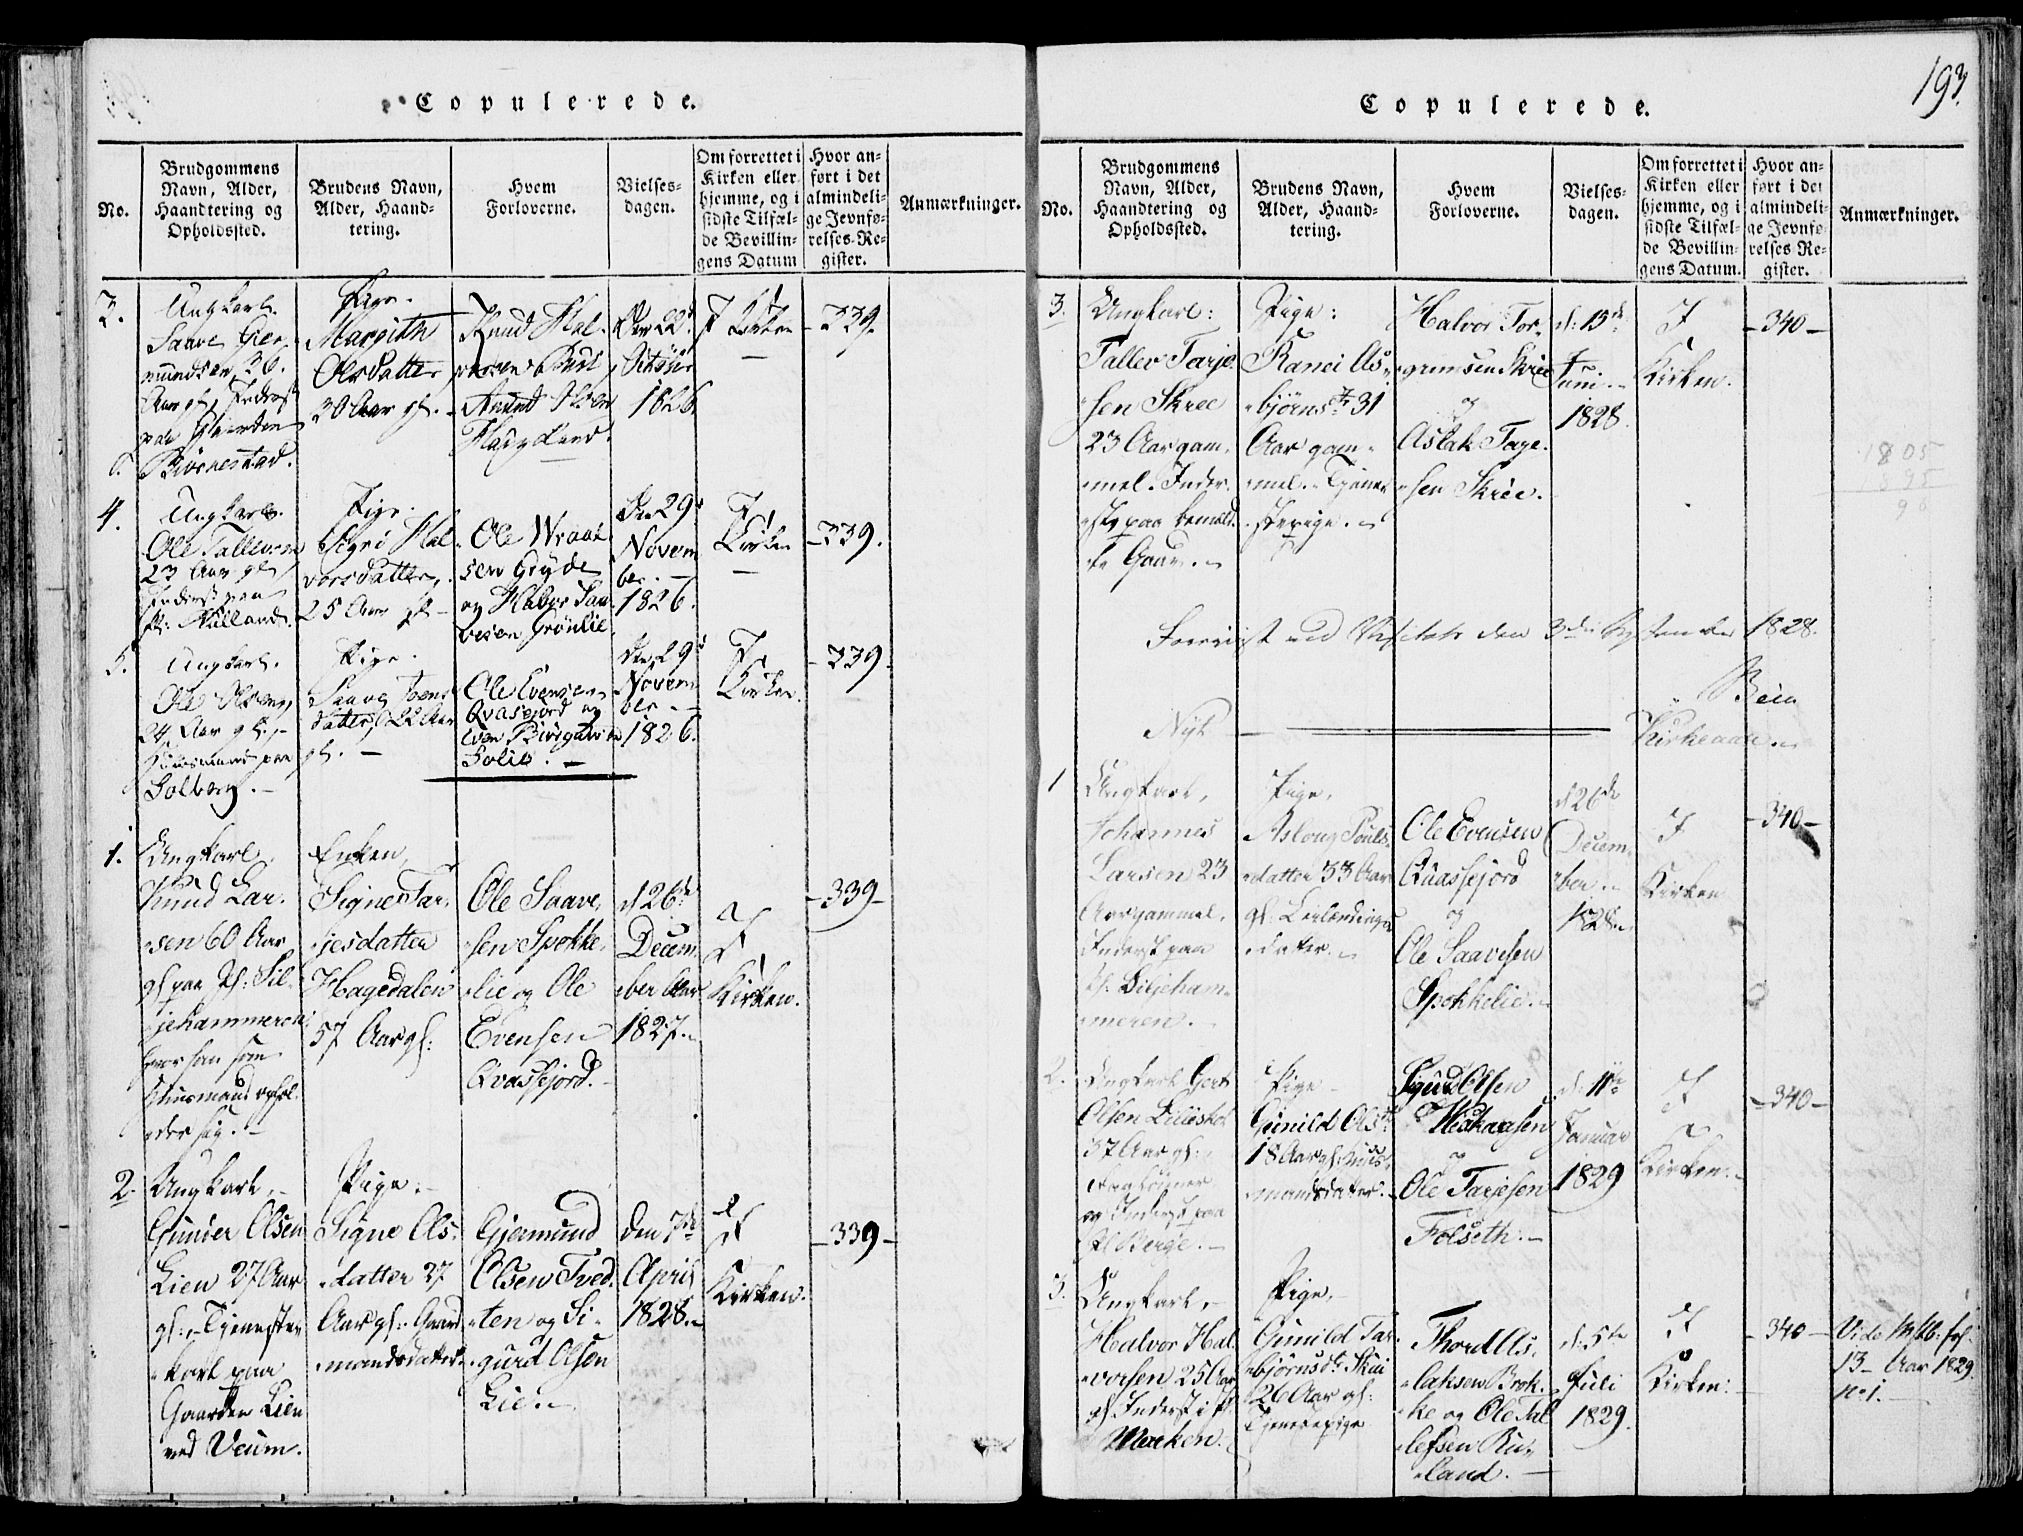 Copulerede.
No.
Brudgommens
Navn, Alder,
Haandtering og
Opholdssted.
Brudens Navn,
Alder, Haand-
tering.
Hvem
Forloverne.
Vielses-
dagen.
Om forrettet i
Kirken eller
hjemme, og i
sidste Tilfæl-
de Bevillin-
gens Datum
Hvor an-
ført i det
almindeli-
ge Jevnfø-
relses-Re-
gister.
Anmærkninger.
3.
Ungkarl.
Saave Gier-
mundsen, 36.
Aar gl, Inderst
paa Gaarden
Biørnestad.
Pige.
Margith
Olsdatter
30 Aar gl. -
Knud Hal-
Amund Olsen
Haugland.
Den 22d
Octobr
1826
I Kirken
-339.
4.
Ungkarl.
Ole Tallevsen
23 Aar gl
Inderst paa
Pl: Hulland.
Pige.
Sigri Hal
vorsdatter,
25 Aar gl -
Ole Wraal
sen Gryde
og Halvor Saa
vesen Grønlie
Den 29d
Novem
ber. -
1826.
I
Kirken
-339.
5.
Ungkarl.
Ole Olsen,
24 Aar gl. -
Huusmand paa
Solberg. -
Pige.
Saave Jons
datter, 22 Aar
gl. -
Ole Evensen
Qvasfjord og
Even Birgitsen
Solie. -
Den 29d
Novem
ber -
1826.
I
Kirken.
-339
1.
Ungkarl
Knud Lar-
sen 60 Aar
gl paa Pl: Lil-
jehammeren
hvor han som
Huusmand ophol-
der sig. -
Enken
Signe Tar-
jesdatter
Hagedalen
57 Aar gl:
Ole Saave-
sen Spokke-
lie og Ole
Evensen
Qvasfjord. -
d 26de
Decem-
ber Aar
1827.
I
Kirken.
-339-
2.
Ungkarl. -
Gunder Olsen
Lien 27 Aar
gl:, Tjeneste
karl paa
Gaarden Lien
ved Veum.
Pige. -
Signe Ols-
datter 27
Aar gl: Gaard
mandsdatter
Gjermund
Olsen Tved-
ten og Si-
gurd Olsen
Lie.
den 7de
April
1828.
I
Kirken.
-339-
193.
Copulerede.
No.
Brudgommens
Navn, Alder,
Haandtering og
Opholdssted.
Brudens Navn,
Alder, Haand-
tering.
Hvem
Forloverne.
Vielses-
dagen.
Om forrettet i
Kirken eller
hjemme, og i
sidste Tilfæl-
de Bevillin-
gens Datum.
Hvor an-
ført i det
almindeli-
ge Jevnfø-
relses Re-
gister.
Anmærkninger.
3.
Ungkarl:
Tallev Tarje-
sen Skree
23 Aar gam-
mel. Inder-
st paa bemeld-
te Gaar.
Pige:
Ranei As-
bjørnsdr 31
Aar gam-
mel. Tjene-
stepige.
Halvor Tor-
grimsen Skree
og
Aslak Tage-
sen Skree.
d: 15de
Juni
1828.
I
Kirken.
-340-
1805
895
90
Foreviist ved Visitats den 3die September 1828.
Nyt
Kirkeaar.
1
Ungkarl,
Johannes
Larsen 23
Aar gammel.
Inderst paa
Pl: Liljeham-
meren.
Pige,
Asloug Pouls-
datter 33 Aar
gl: Leilændings
dater.
Ole Evensen
Quasfjord
og
Ole Saavesen
Spokkelie.
d 26de
Decem-
ber.
1828.
I
Kirken
-340-
2.
Ungkarl Gert
Olsen Lillesko
37 Aar gl:
og Inderst paa
Berge. -
Pige
Gunild Olsdr
18 Aar gl: Huus-
mandsdater. -
Sigurd Olsen
og
Ole Tarjesen
Folseth. -
d: 11te
Januar
1829
I
Kirken. -
-340-
3.
Ungkarl, -
Halvor Hal-
vorsen 25 Aar
gl Inderst i Pl
Moeken.
Pige, -
Gunild Tar-
bjørnsdr Skui
26 Aar gl:
Tjenestepige
Thord As-
laksen Brok-
ke og Ole Tal
lefsen Ru-
land. -
d: 5te
Juli
1829.
I
Kirken:
-340-
Vide
13- Aar 1829
no 1.